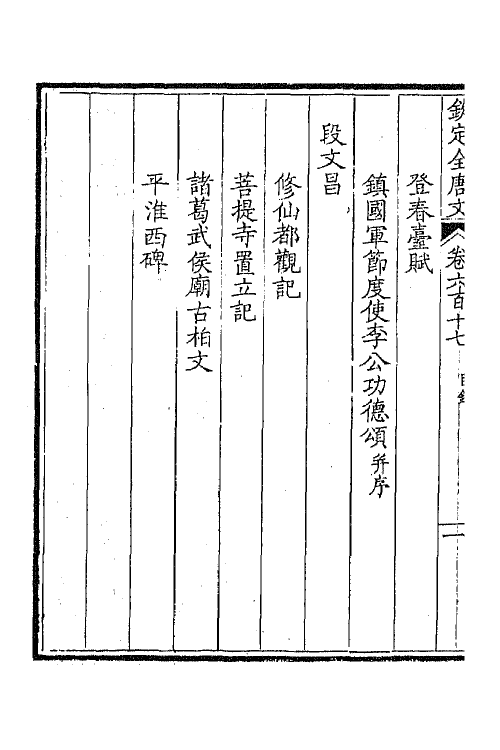 欽定全唐文 卷六百十七 目錄 一
登春臺賦
鎮國軍節度使李公功德頌并序
段文昌
修仙都觀記
菩提寺置立記
諸葛武侯廟古柏文
平淮西碑